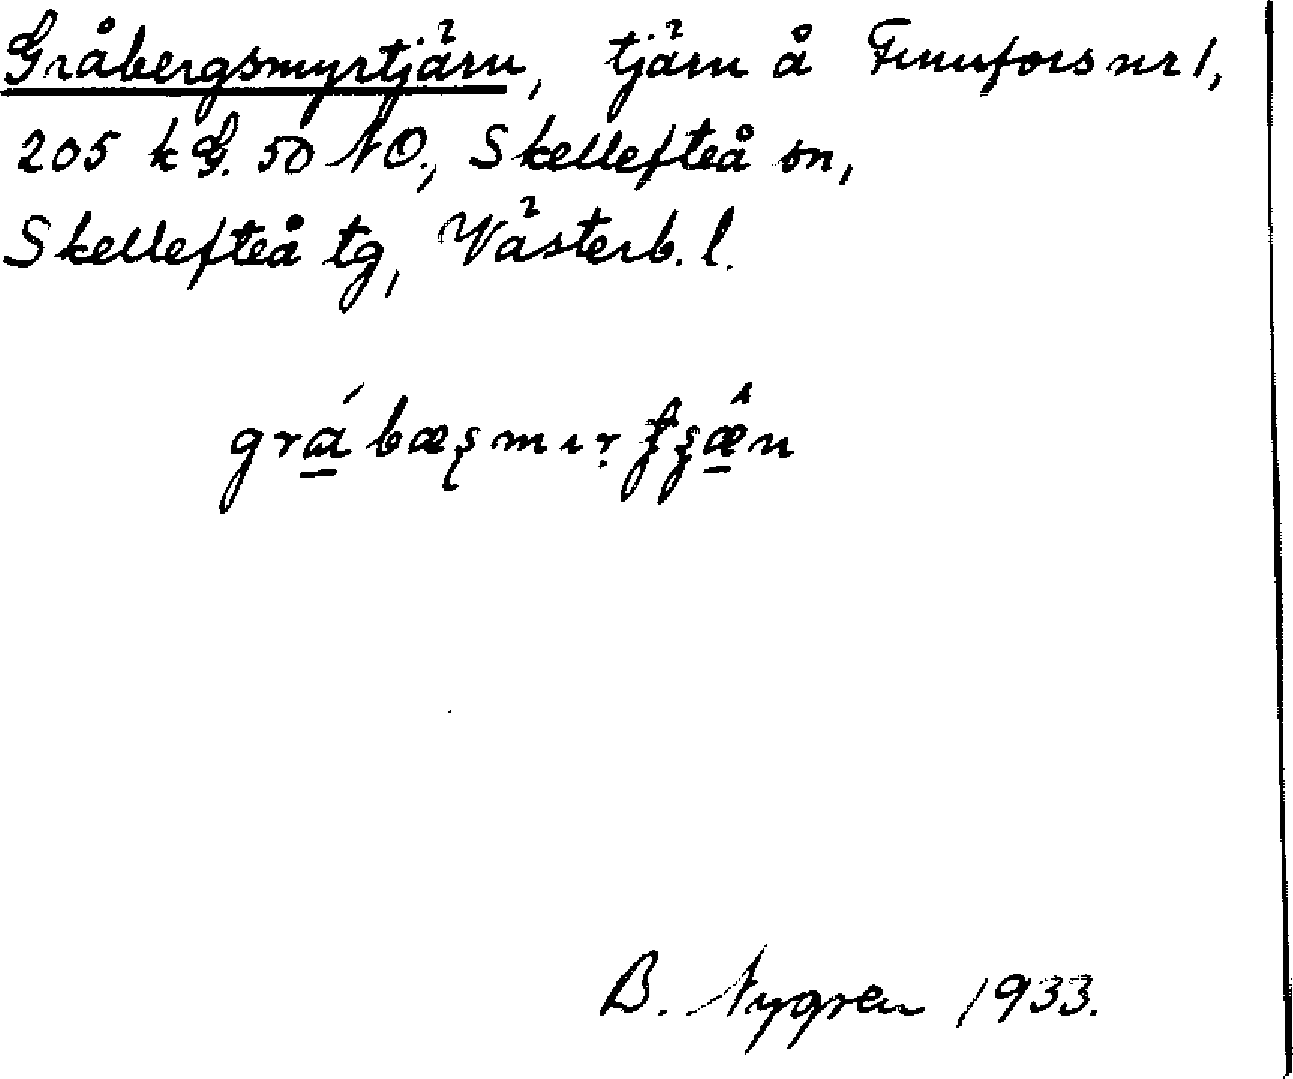 Gråbergsmyrtjärn, tjärn å Finnfors nr 1,
205 k G. 50 NO., Skellefteå sn,
Skellefteå tg, Västerb. l.
B. Nygren 1933.